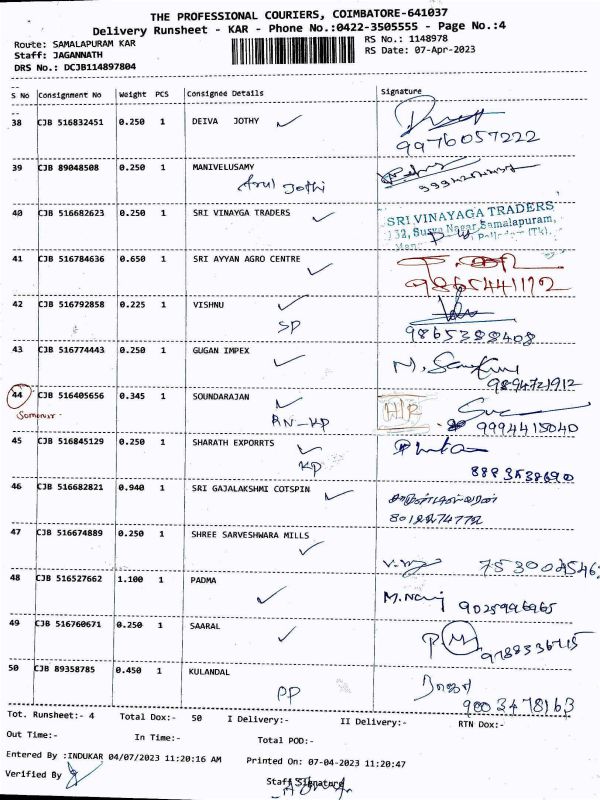 THE PROFESSIONAL COURIERS, COIMBATORE-641037
Delivery Runsheet - KAR - Phone No.:0422-3505555 - Page No.:4
Route: SAMALAPURAM KAR
RS No.: 1148978
Staff: JAGANNATH
RS Date: 07-Apr-2023
DRS No.: DCJB114897804
S No Consignment No Weight PCS Consignee Details Signature
38 CJB 516832451 0.250 1 DEIVA JOTHY
9976057222
39 CJB 89048508 0.250 1 MANIVELUSAMY
Arul Jothi
40 CJB 516682623 0.250 1 SRI VINAYGA TRADERS
SRI VINAYAGA TRADERS
132, Surya Nagar, Samalapuram,
(Tk).
41 CJB 516784636 0.650 1 SRI AYYAN AGRO CENTRE
9865441172
42 CJB 516792858 0.225 1 VISHNU
SP
9865388408
43 CJB 516774443 0.250 1 GUGAN IMPEX
9894721912
44 CJB 516405656 0.345 1 SOUNDARAJAN
H/R
RN-KP
9994415040
45 CJB 516845129 0.250 1 SHARATH EXPORRTS
KP
8883538690
46 CJB 516682821 0.940 1 SRI GAJALAKSHMI COTSPIN
47 CJB 516674889 0.250 1 SHREE SARVESHWARA MILLS
48 CJB 516527662 1.100 1 PADMA
9025996965
49 CJB 516760671 0.250 1 SAARAL
50 CJB 89358785 0.450 1 KULANDAL
PP
9003478163
Tot. Runsheet:- 4 Total Dox:- 50 I Delivery:- II Delivery:- RTN Dox:-
Out Time:- In Time:- Total POD:-
Entered By :INDUKAR 04/07/2023 11:20:16 AM Printed On: 07-04-2023 11:20:47
Verified By
Staff Signature